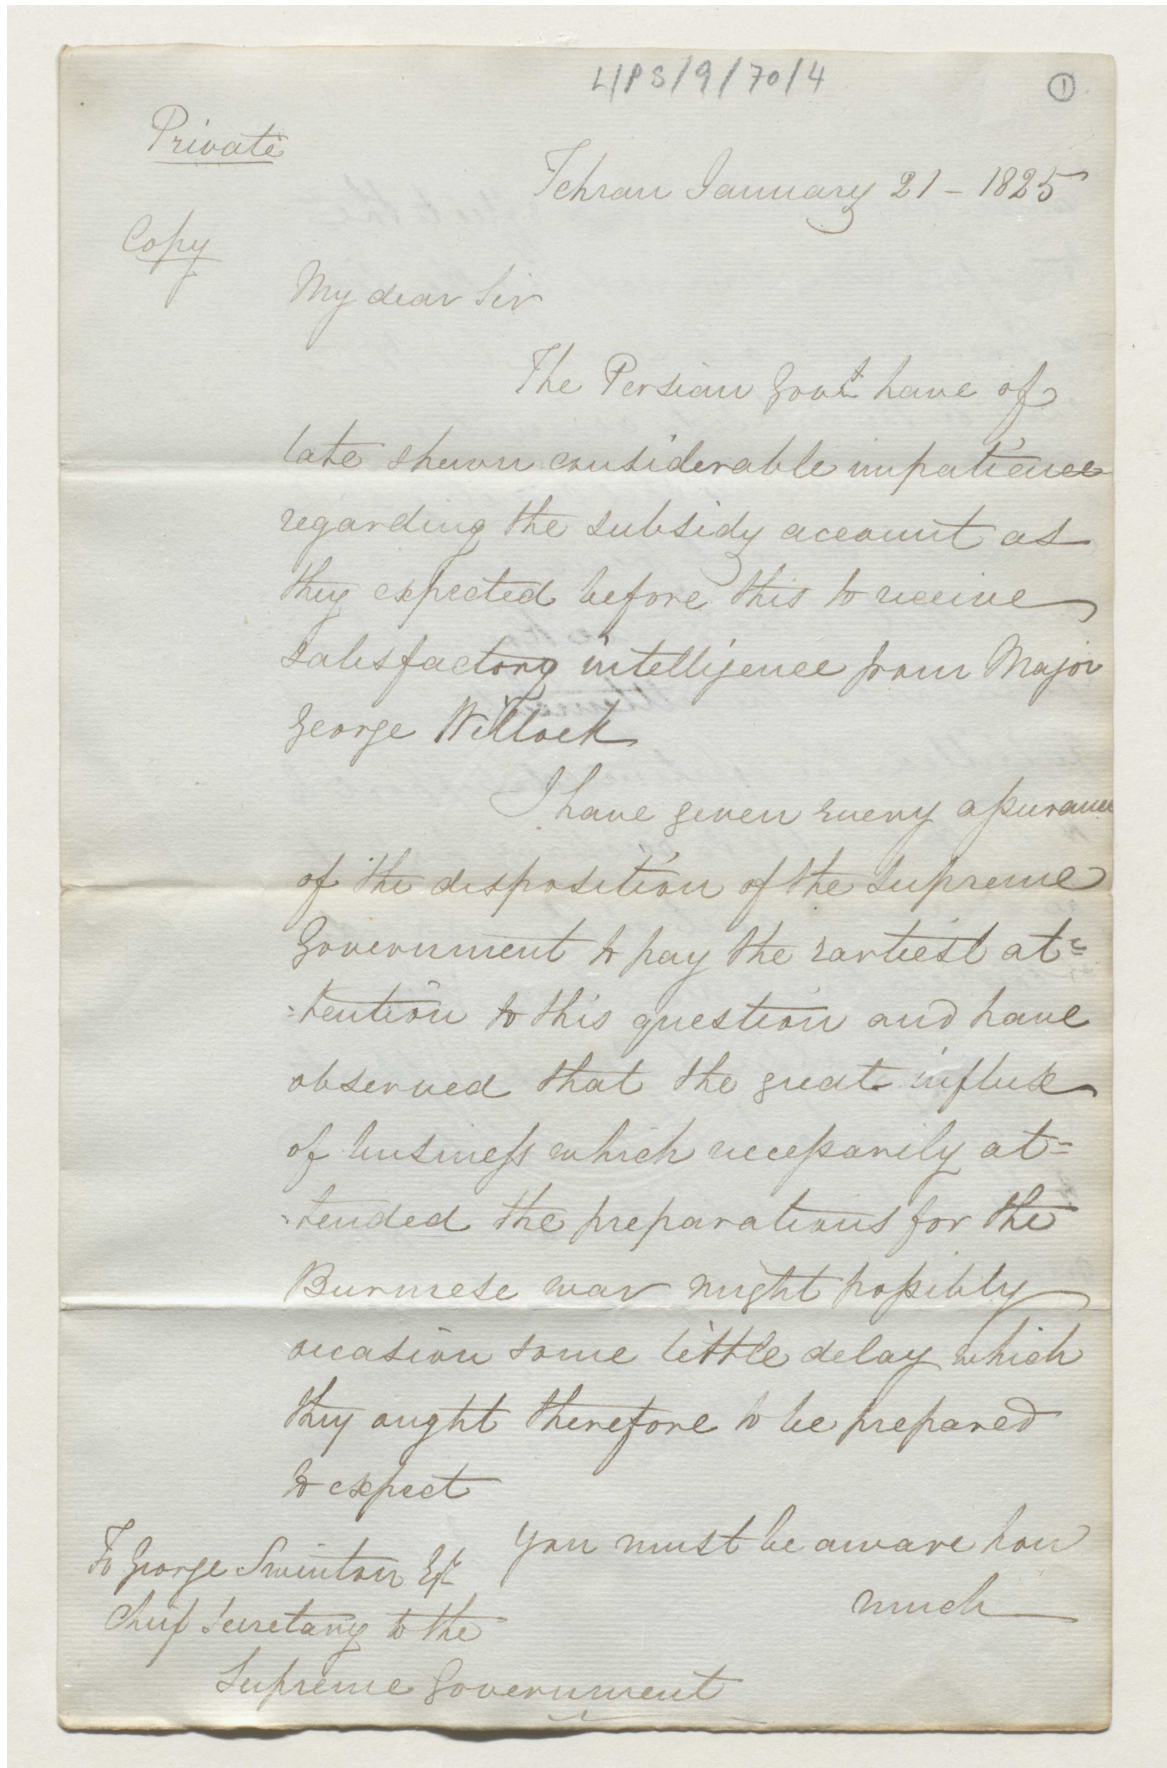 L/PS/9/70/4
1
Private
Tehran January 21 - 1825
Copy
My dear Sir
The Persian Govt have of
late shewn considerable impatience
regarding the subsidy account as
they expected before this to receive
satisfactory intelligence from Major
George Willock
I have given every assurance
of the disposition of the Supreme
Government to pay the earliest at=
=tention to this question and have
observed that the great influx
of business which necessarily at=
=tended the preparations for the
Burmese war might possibly
occasion some little delay which
they ought therefore to be prepared
to expect
You must be aware how
much
To George Swinton Esq
Chief Secretary to the
Supreme Government